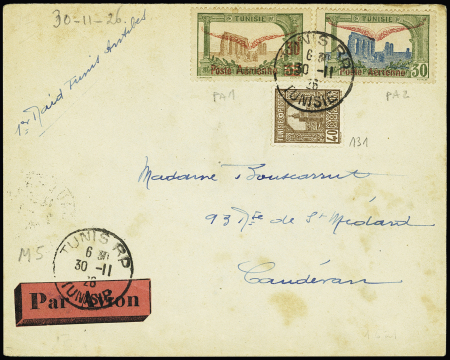 30-11-26
1er Raid Tunis Antibes
TUNISIE
Poste Aérienne
TUNISIE
Poste Aérienne
30
TUNIS RP
6 30
30 -11
26
TUNISIE
PA1
PA2
40
131
Madame Bouscarrut
93 Rte de St Médard
Caudéran
M5
TUNIS RP
6 30
30 -11
26
TUNISIE
Par Avion